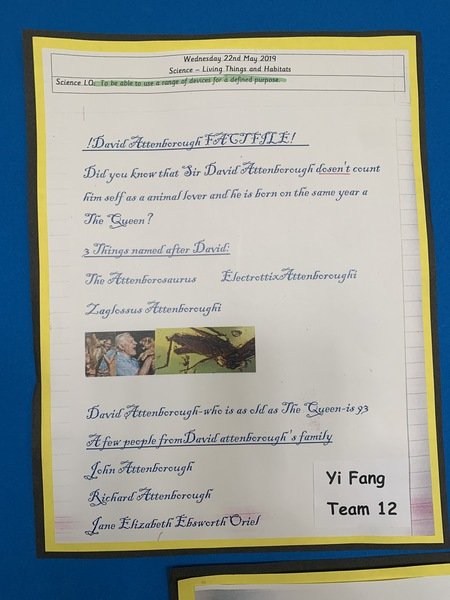 Wednesday 22nd May 2019
Science – Living Things and Habitats
Science L.O: To be able to use a range of devices for a defined purpose.
!David Attenborough FACTFILE!
Did you know that Sir David Attenborough dosen't count
him self as a animal lover and he is born on the same year a
The Queen?
3 Things named after David:
The Attenborosaurus ElectrottixAttenboroughi
Zaglossus Attenboroughi
David Attenborough-who is as old as The Queen-is 93
A few people fromDavid attenborough's family
John Attenborough
Richard Attenborough
Jane Elizabeth Ebsworth Oriel
Yi Fang
Team 12